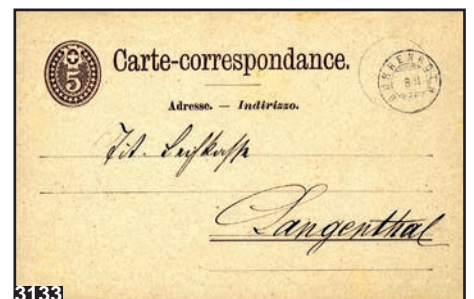 5
Carte-correspondance.
Adresse. — Indirizzo.
Tit. Leihkasse
Langenthal
3133